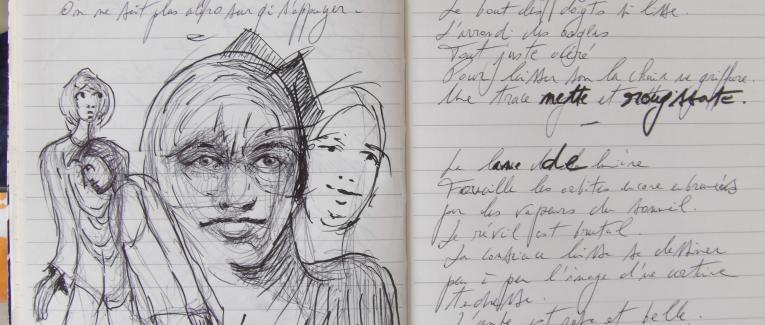 On ne sait plus alors sur qui s'appuyer.
Le bout des doigts si lisse.
L'arrondi des ongles
Tout juste acéré
Pour laisser sur la chair une griffure.
Une trace nette et rougissante.
La lame de lumière
Fouille les orbites encore embrumées
par les vapeurs du sommeil.
Le réveil est brutal.
La conscience laisse se dessiner
peu à peu l'image d'une certaine
L'aube est rose et belle.